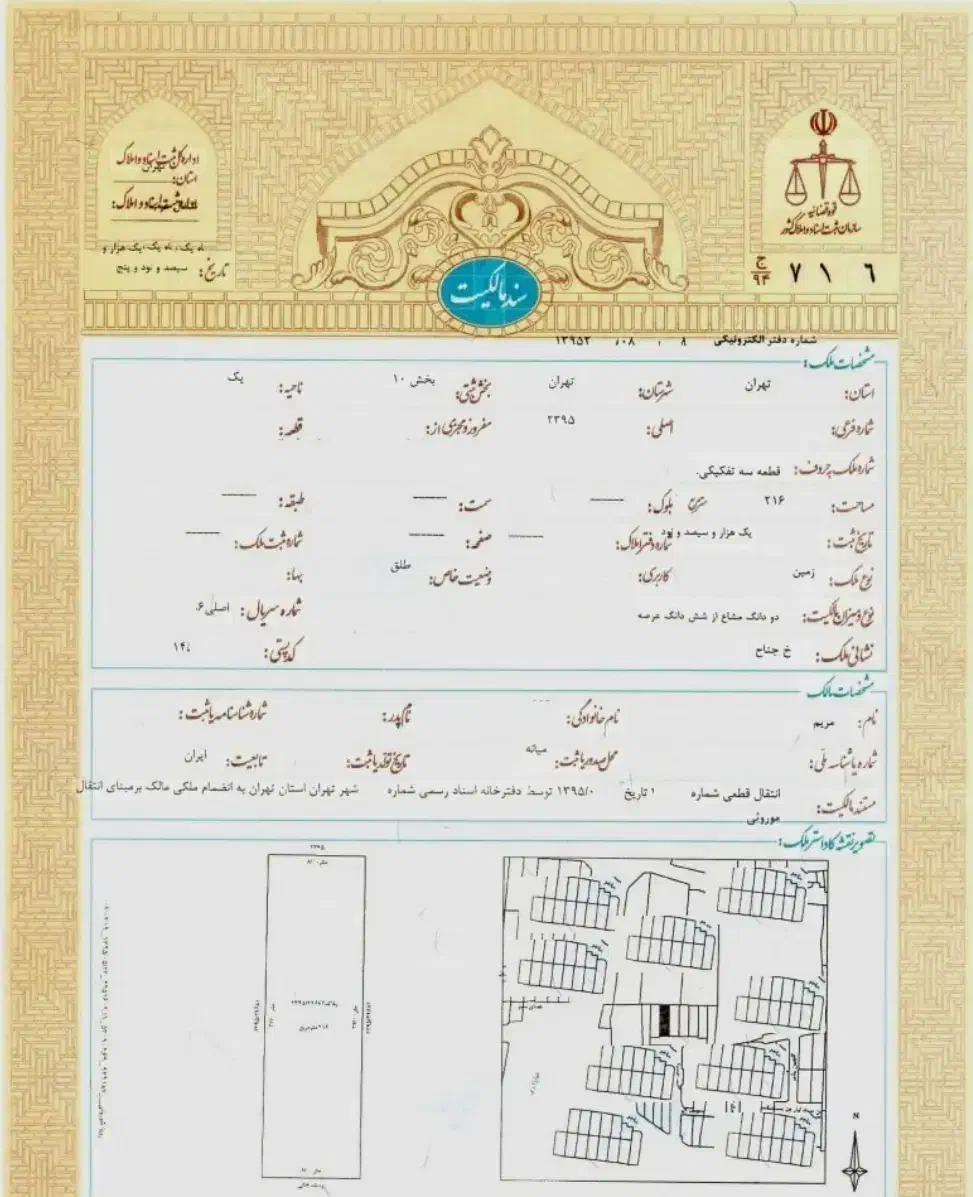 قوه قضائیه
سازمان ثبت اسناد و املاک کشور
ج
۹۴
۷ ۱ ۶
اداره کل ثبت اسناد و املاک
استان: تهران
اداره ثبت اسناد و املاک:
تاریخ: یک هزار و سیصد و نود و پنج
سند مالکیت
شماره دفتر الکترونیکی
مشخصات ملک:
استان: تهران شهرستان: تهران بخش ثبتی: بخش ۱۰ ناحیه: یک
شماره فرعی: اصلی: ۲۳۹۵ مفروز و مجزی از: قطعه:
شماره ملک به حروف: قطعه سه تفکیکی.
مساحت: ۲۱۶ مترمربع بلوک: —— سمت: —— طبقه: ——
تاریخ ثبت: یک هزار و سیصد و نود شماره دفتر املاک: —— صفحه: —— شماره ثبت ملک: ——
نوع ملک: زمین کاربری: وضعیت خاص: طلق بهاء:
نوع و میزان مالکیت: دو دانگ مشاع از شش دانگ عرصه شماره سریال: اصلی۶
نشانی ملک: خ جناح کدپستی: ۱۴
مشخصات مالک
نام: مریم نام خانوادگی: نام پدر: شماره شناسنامه یا ثبت:
شماره یا شناسه ملی: محل صدور یا ثبت: میانه تاریخ تولد یا ثبت: تابعیت: ایران
مستند مالکیت: انتقال قطعی شماره ۱ تاریخ ۱۳۹۵/۰ توسط دفترخانه اسناد رسمی شماره شهر تهران استان تهران به انضمام ملکی مالک برمبنای انتقال
موروثی
تصویر نقشه کاداستر ملک:
۲۳۹۵
N